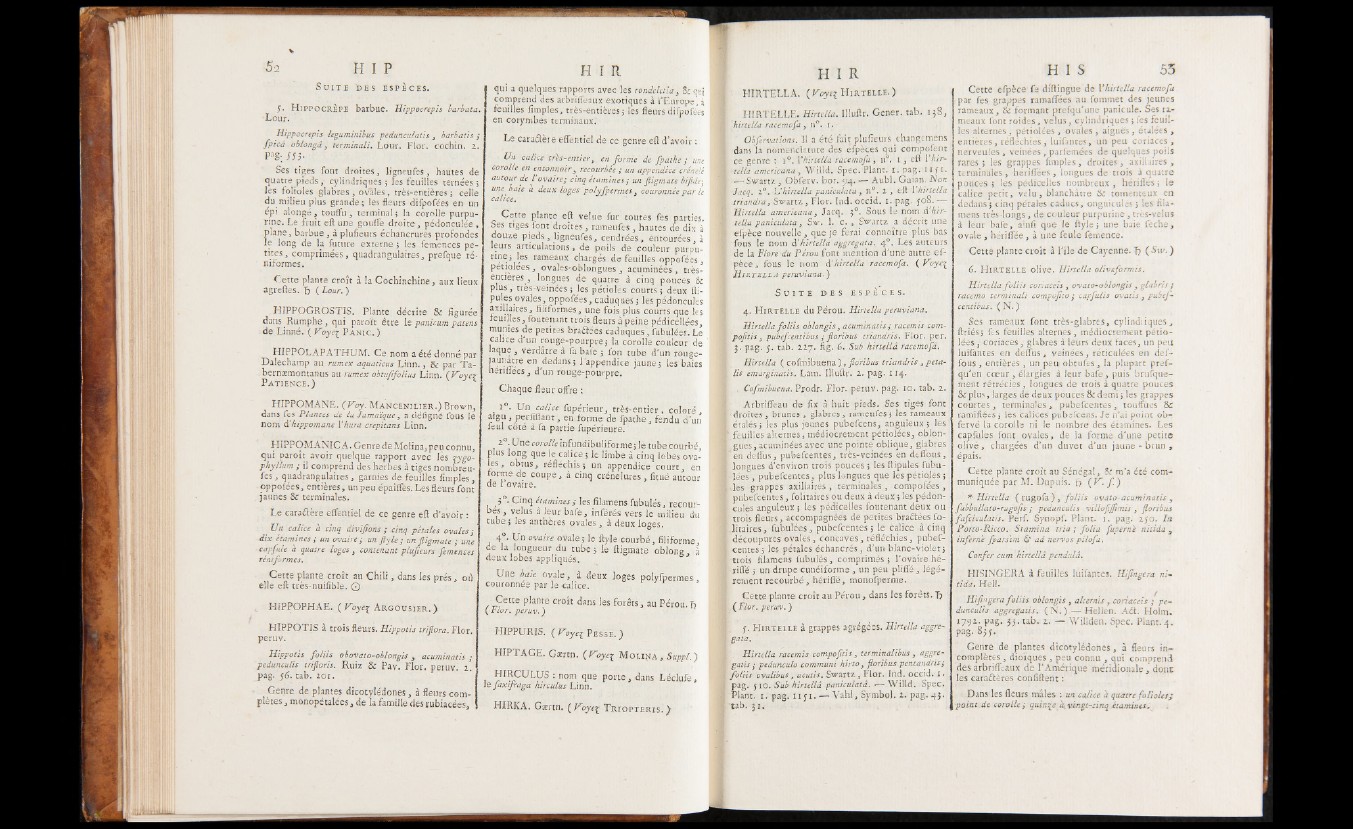 52 H I P
SUITE DES ESPÈCES.
5. HIPPOCRÈPE barbue. Hippocrepis barbata.
Lour.
Hippocrepis leguminibus pedunculatis, barbatis ;
ſpicâ oblongâ, terminali. Lour. Flor. cochin. 2.
pag. 553.
Ses tiges ſont droites, ligneuſes, hautes de
quatre pieds, cylindriques ; les feuilles ternées ;
les folioles glabres, ovales, très-entières ; celle
du milieu plus grande ; les fleurs diſpoſées en un
épi alongé, touffu, terminal ; la corolle purpu-
rine. Le fruit eſt une gouſſe droite, pédonculée,
plane, barbue, à pluſieurs échancrures profondes
le long de la ſuture externe ; les ſemences pe-
tites, comprimées, quadrangulaires, preſque ré-
niformes.
Cette plante croît à la Cochinchine, aux lieux
agreſtes. ♄ (Lour.)
HIPPOGROSTIS. Plante décrite & figurée
dans Rumphe, qui paroît être le panicum patens
de Linné. (Voyez PANIC.)
HIPPOLAPATHUM. Ce nom a été donné par
Dalechamp au rumex aquaticus Linn., & par Ta-
bernæmontanus au rumex obtuſifolius Linn. (Voyez
PATIENCE.)
HIPPOMANE. (Voy. MANCENILIER.) Brown,
dans ſes Plantes de la Jamaïque, a déſigné ſous le
nom d'hippomane l'hura crepitans Linn.
HIPPOMANICA. Genre de Molina, peu connu,
qui paroît avoir quelque rapport avec les zygo-
phyllum ; il comprend des herbes à tiges nombreu-
ſes, quadrangulaires, garnies de feuilles ſimples,
oppoſées, entières, un peu épaiſſes. Les fleurs ſont
jaunes & terminales.
Le caractère eſſentiel de ce genre eſt d'avoir :
Un calice à cinq diviſions ; cinq pétales ovales ;
dix étamines ; un ovaire ; un ſtyle ; un ſtigmate ; une
capſule à quatre loges, contenant pluſieurs ſemences
réniformes.
Cette plante croît au Chili, dans les prés, où
elle eſt très-nuiſible. ☉
HIPPOPHAE. (Voyez ARGOUSIER.)
HIPPOTIS à trois fleurs. Hippotis triflora. Flor.
peruv.
Hippotis foliis obovato-oblongis, acuminatis ;
pedunculis trifloris. Ruiz & Pav. Flor. peruv. 2.
pag. 56. tab. 201.
Genre de plantes dicotylédones, à fleurs com-
plètes, monopétalées, de la famille des rubiacées,
H I R
qui a quelques rapports avec les rondeletia, & qui
comprend des arbriſſeaux exotiques à l'Europe, à
feuilles ſimples, très-entières ; les fleurs diſpoſées
en corymbes terminaux.
Le caractère eſſentiel de ce genre eſt d'avoir :
Un calice très-entier, en forme de ſpathe ; une
corolle en entonnoir, recourbée ; un appendice crénelé
autour de l'ovaire ; cinq étamines ; un ſtigmate bifide ;
une baie à deux loges polyſpermes, couronnée par le
calice.
Cette plante eſt velue ſur toutes ſes parties.
Ses tiges ſont droites, rameuſes, hautes de dix à
douze pieds, ligneuſes, cendrées, entourées, à
leurs articulations, de poils de couleur purpu-
rine ; les rameaux chargés de feuilles oppoſées,
pétiolées, ovales-oblongues, acuminées, très-
entières, longues de quatre à cinq pouces &
plus, très-veinées ; les pétioles courts ; deux ſti-
pules ovales, oppoſées, caduques ; les pédoncules
axillaires, filiformes, une fois plus courts que les
feuilles, ſoutenant trois fleurs à peine pédicellées,
munies de petites bractées caduques, ſubulées. Le
calice d'un rouge-pourpre ; la corolle couleur de
laque, verdâtre à ſa baſe ; ſon tube d'un rouge-
jaunâtre en dedans ; l'appendice jaune ; les baies
hériſſées, d'un rouge-pourpre.
Chaque fleur offre :
1°. Un calice ſupérieur, très-entier, coloré,
aigu, perſiſtant, en forme de ſpathe, fendu d'un
ſeul côté à ſa partie ſupérieure.
2°. Une corolle infundibuliforme ; le tube courbé,
plus long que le calice ; le limbe à cinq lobes ova-
les, obtus, réfléchis ; un appendice court, en
forme de coupe, à cinq crénelures, ſitué autour
de l'ovaire.
3°. Cinq étamines ; les filamens ſubulés, recour-
bés, velus à leur baſe, inſérés vers le milieu du
tube ; les anthères ovales, à deux loges.
4°. Un ovaire ovale ; le ſtyle courbé, filiforme,
de la longueur du tube ; le ſtigmate oblong, à
deux lobes appliqués.
Une baie ovale, à deux loges polyſpermes,
couronnée par le calice.
Cette plante croît dans les forêts, au Pérou. ♄
(Flor. peruv.)
HIPPURIS. (Voyez PESSE.)
HIPTAGE. Gærtn. (Voyez MOLINA, Suppl.)
HIRCULUS : nom que porte, dans Lécluſe,
le ſaxifraga hirculus Linn.
HIRKA. Gærtn. (Voyez TRIOPTERIS.)
H I R
HIRTELLA. (Voyez HIRTELLE.)
HIRTELLE. Hirtella. Illuſtr. Gener. tab. 138,
hirtella racemoſa, n°. 1.
Obſervations. Il a été fait pluſieurs changemens
dans la nomenclature des eſpèces qui compoſent
ce genre : 1°. l'hirtella racemoſa, n°. 1, eſt l'hir-
tella americana, Willd. Spec. Plant. 1. pag. 1151.
— Swartz, Obſerv. bot. 94. — Aubl. Guian. Non
Jacq. 2°. L'hirtella paniculata, n°. 2, eſt l'hirtella
triandra, Swartz, Flor. Ind. occid. 1. pag. 508. —
Hirtella americana, Jacq. 3°. Sous le nom d'hir-
tella paniculata, Sw. l. c., Swartz a décrit une
eſpèce nouvelle, que je ferai connoître plus bas
ſous le nom d'hirtella aggregata. 4°. Les auteurs
de la Flore du Pérou font mention d'une autre eſ-
pèce, ſous le nom d'hirtella racemoſa. (Voyez
HIRTELLA peruviana.)
SUITE DES ESPÈCES.
4. HIRTELLE du Pérou. Hirtella peruviana.
Hirtella foliis oblongis, acuminatis ; racemis com-
poſitis, pubeſcentibus ; floribus triandris. Flor. per.
3. pag. 5. tab. 227. fig. 6. Sub hirtellâ racemoſâ.
Hirtella (coſmibuena), floribus triandris, peta-
lis emarginatis. Lam. Illuſtr. 2. pag. 114.
Coſmibuena. Prodr. Flor. peruv. pag. 10. tab. 2.
Arbriſſeau de ſix à huit pieds. Ses tiges ſont
droites, brunes, glabres, rameuſes ; les rameaux
étalés ; les plus jeunes pubeſcens, anguleux ; les
feuilles alternes, médiocrement pétiolées, oblon-
gues, acuminées avec une pointe oblique, glabres
en deſſus, pubeſcentes, très-veinées en deſſous,
longues d'environ trois pouces ; les ſtipules ſubu-
lées, pubeſcentes, plus longues que les pétioles ;
les grappes axillaires, terminales, compoſées,
pubeſcentes, ſolitaires ou deux à deux ; les pédon-
cules anguleux ; les pédicelles ſoutenant deux ou
trois fleurs, accompagnées de petites bractées ſo-
litaires, ſubulées, pubeſcentes ; le calice à cinq
découpures ovales, concaves, réfléchies, pubeſ-
centes ; les pétales échancrés, d'un blanc-violet ;
trois filamens ſubulés, comprimés ; l'ovaire hé-
riſſé ; un drupe cunéiforme, un peu pliſſé, légé-
rement recourbé, hériſſé, monoſperme.
Cette plante croît au Pérou, dans les forêts. ♄
(Flor. peruv.)
5. HIRTELLE à grappes agrégées. Hirtella aggre-
gata.
Hirtella racemis compoſitis, terminalibus, aggre-
gatis ; pedunculo communi hirto, floribus pentandris ;
foliis ovalibus, acutis. Swartz, Flor. Ind. occid. 1.
pag. 510. Sub hirtellâ paniculatâ. — Willd. Spec.
Plant. 1. pag. 1151. — Vahl, Symbol. 2. pag. 43.
tab. 32.
H I S 53
Cette eſpèce ſe diſtingue de l'hirtella racemoſa
par ſes grappes ramaſſées au ſommet des jeunes
rameaux, & formant preſqu'une panicule. Ses ra-
meaux ſont roides, velus, cylindriques ; ſes feuil-
les alternes, pétiolées, ovales, aiguës, étalées,
entières, réfléchies, luiſantes, un peu coriaces,
nerveuſes, veinées, parſemées de quelques poils
rares ; les grappes ſimples, droites, axillaires,
terminales, hériſſées, longues de trois à quatre
pouces ; les pédicelles nombreux, hériſſés ; le
calice petit, velu, blanchâtre & tomenteux en
dedans ; cinq pétales caducs, onguiculés ; les fila-
mens très-longs, de couleur purpurine, très-velus
à leur baſe, ainſi que le ſtyle ; une baie ſèche,
ovale, hériſſée, à une ſeule ſemence.
Cette plante croît à l'île de Cayenne. ♄ (Sw.)
6. HIRTELLE olive. Hirtella olivaformis.
Hirtella foliis coriaceis, ovato-oblongis, glabris ;
racemo terminali compoſito ; capſulis ovatis, pubeſ-
centibus. (N.)
Ses rameaux ſont très-glabres, cylindriques,
ſtriés ; les feuilles alternes, médiocrement pétio-
lées, coriaces, glabres à leurs deux faces, un peu
luiſantes en deſſus, veinées, réticulées en deſ-
ſous, entières, un peu obtuſes, la plupart preſ-
qu'en cœur, élargies à leur baſe, puis bruſque-
ment rétrécies, longues de trois à quatre pouces
& plus, larges de deux pouces & demi ; les grappes
courtes, terminales, pubeſcentes, touffues &
ramifiées ; les calices pubeſcens. Je n'ai point ob-
ſervé la corolle ni le nombre des étamines. Les
capſules ſont ovales, de la forme d'une petite
olive, chargées d'un duvet d'un jaune-brun,
épais.
Cette plante croît au Sénégal, & m'a été com-
muniquée par M. Dupuis. ♄ (V. ſ.)
* Hirtella (rugoſa), foliis ovato-acuminatis,
ſubbullato-rugoſis ; pedunculis villoſiſſimis, floribus
faſciculatis. Perſ. Synopſ. Plant. 1. pag. 250. In
Porto-Ricco. Stamina tria ; folia ſupernè nitida,
infernè ſparſim & ad nervos piloſa.
Confer cum hirtellâ pendulâ.
HISINGERA à feuilles luiſantes. Hiſingera ni-
tida. Hell.
Hiſingera foliis oblongis, alternis, coriaceis ; pe-
dunculis aggregatis. (N.) — Hellen. Act. Holm.
1792. pag. 33. tab. 2. — Willden. Spec. Plant. 4.
pag. 835.
Genre de plantes dicotylédones, à fleurs in-
complètes, dioïques, peu connu, qui comprend
des arbriſſeaux de l'Amérique méridionale, dont
les caractères conſiſtent :
Dans les fleurs mâles : un calice à quatre folioles ;
point de corolle ; quinze à vingt-cinq étamines.